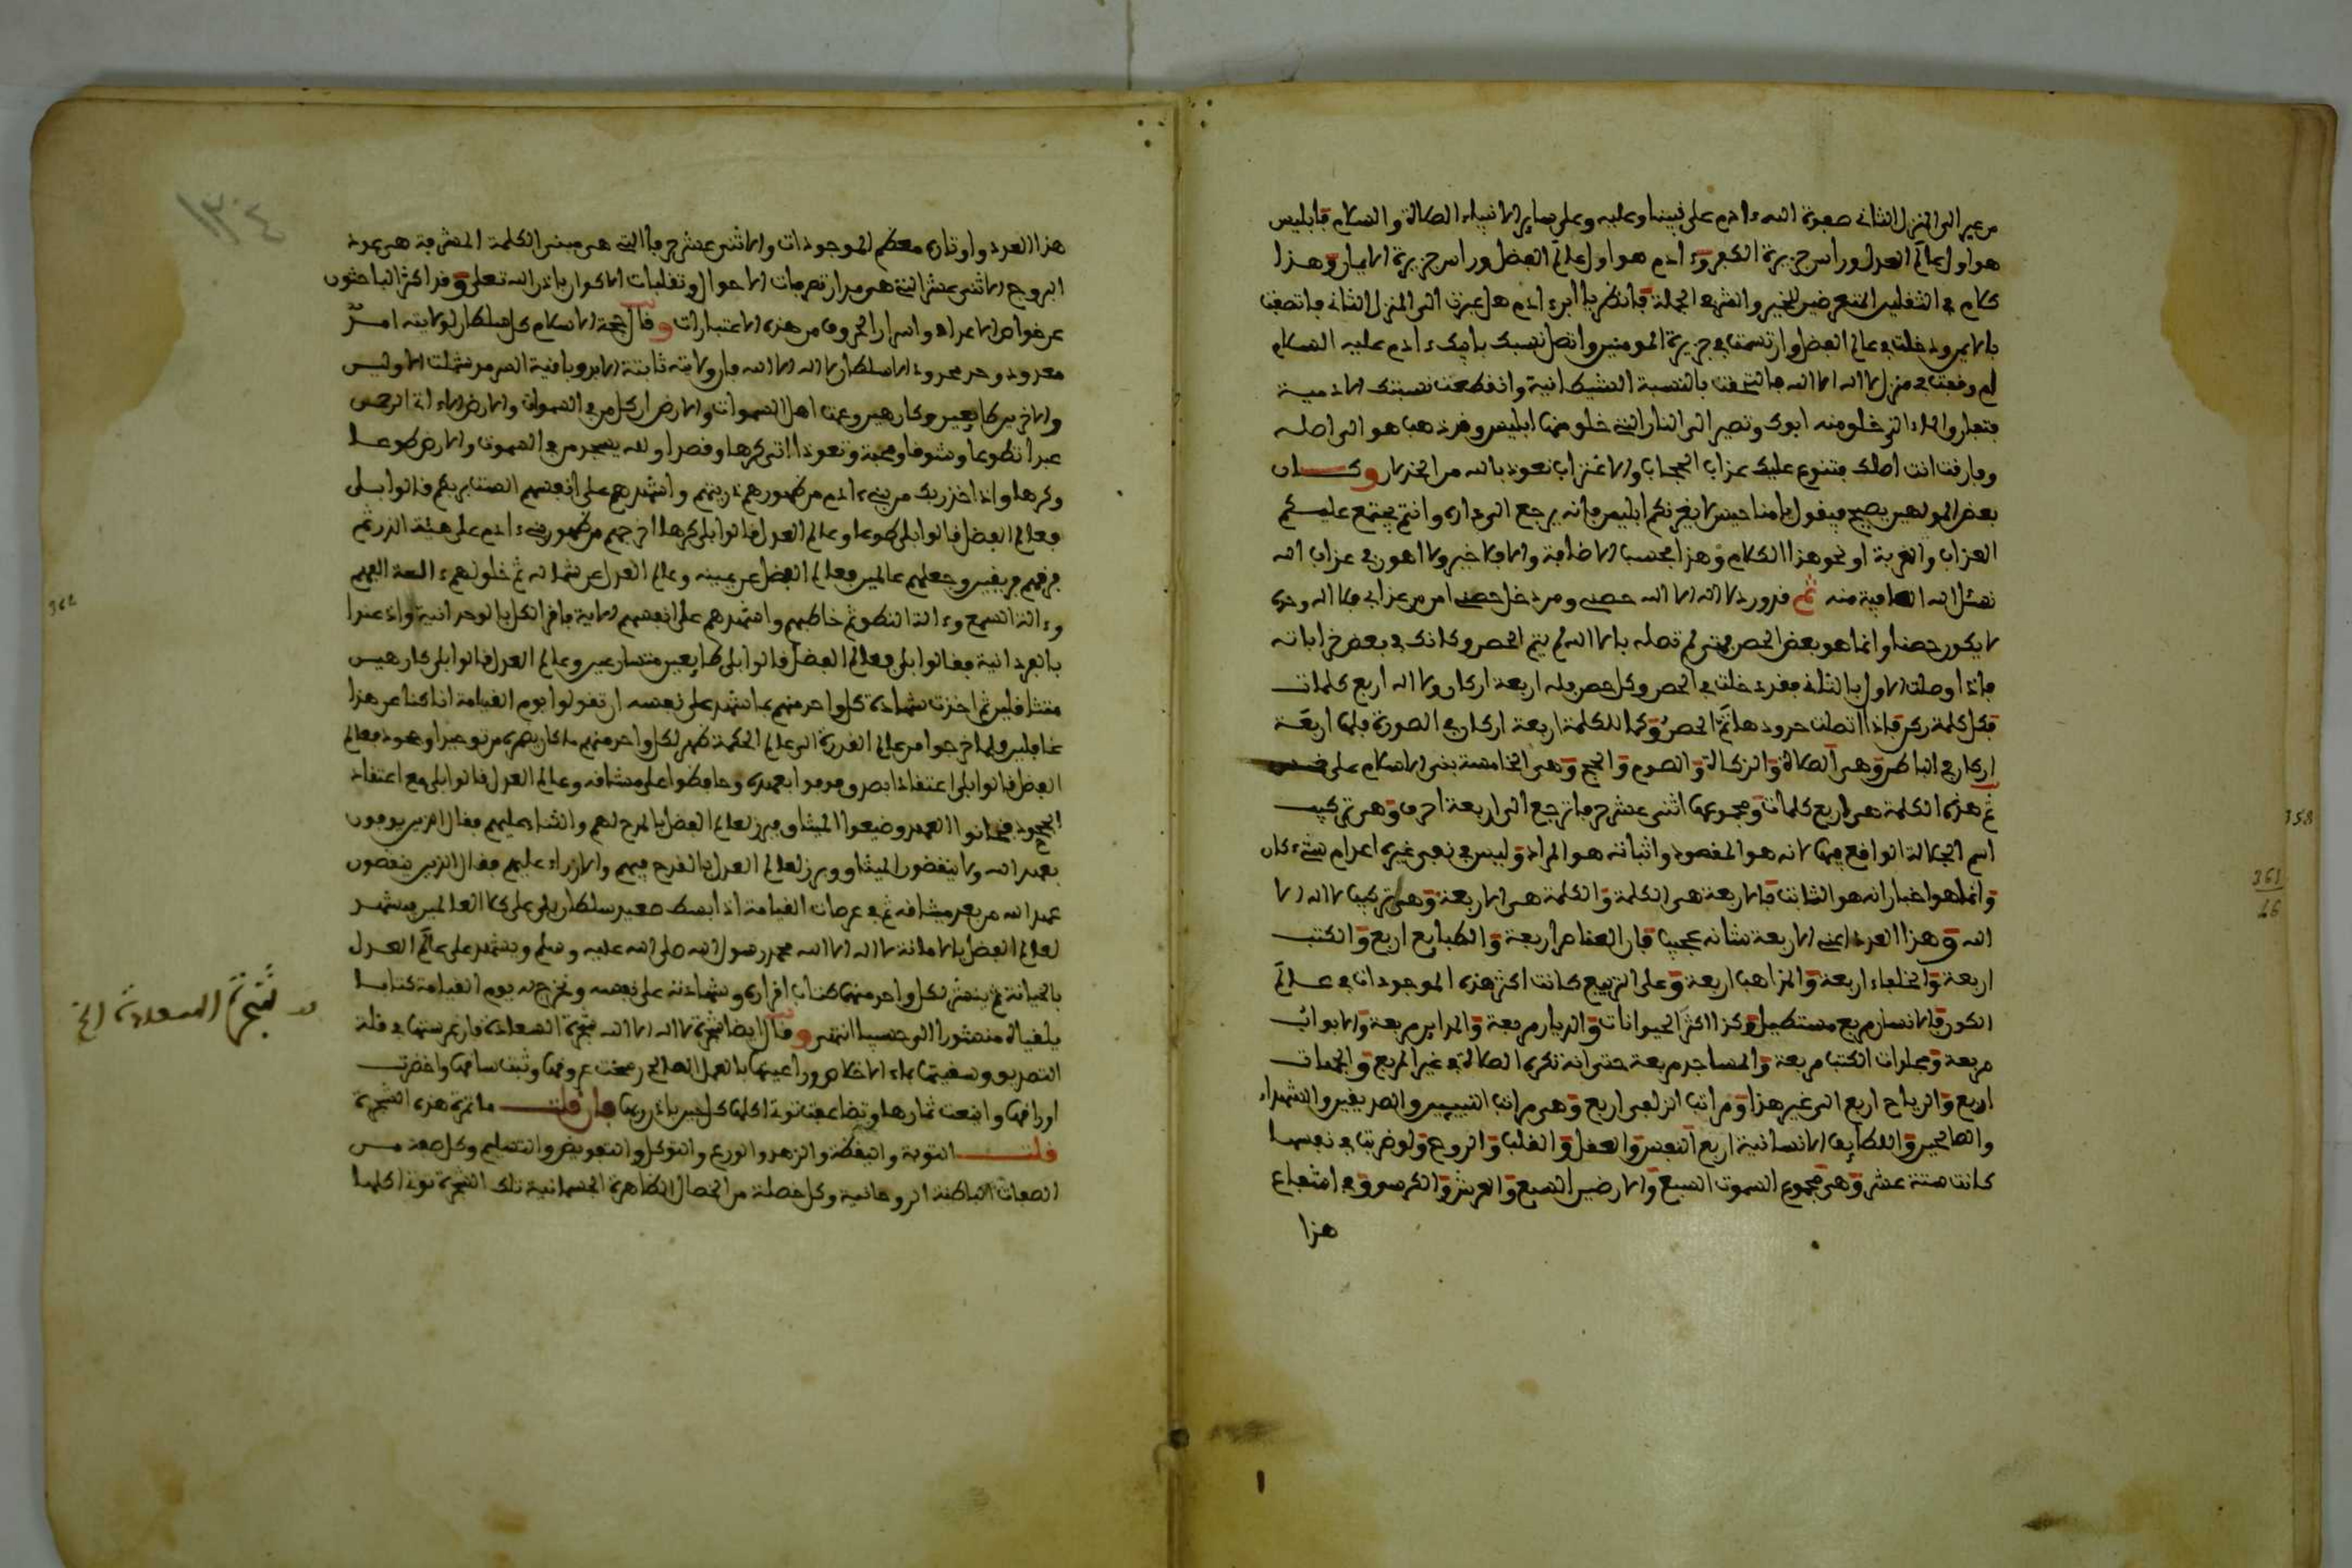 من عبر الى المنزل الثاني صفوة الله ءادم على نبينا وعليه وعلى ساير الانبياء الصلاة والسلام فابليس
هو اول عالم العدل وراس جزيرة الكفر وءادم هو اول عالم الفضل وراس جزيرة الايمان وهذا
كلام في الثقلين المتعرضين للخير والشر في الجملة فانظر يا ابن ءادم هل عبرت الى المنزل الثاني فاتصفت
بالايمان ودخلت في عالم الفضل وارتسمت في جزيرة المومنين واتصل نسبك بابيك ءادم عليه السلام
ام وقفت في منزل لا اله الا الله فالتحقت بالنسبة الشيطانية وانقطعت نسبتك الادمية
فتفارق الماء الذي خلق منه ابوك وتصير الى النار التي خلق منها ابليس وقد ذهب هو الى اصله
وفارقت انت اصلك فتنوع عليك عذاب الحجاب والاغتراب نعوذ بالله من الخذلان وكان
بعض المولهين يصيح فيقول يامنا حيس لا يغرنكم ابليس فانه يرجع الى داره وانتم يجتمع عليكم
العذاب والغربة او نحو هذا الكلام وهذا بحسب الاضافة والا فلا خير ولا اهون في عذاب الله
نسئل الله العافية منه ثم قد ورد لا اله الا الله حصني ومن دخل حصني امن من عذابي فلا اله وحده
لا يكون حصنا وانما هو بعض الحصن فمتى لم تصله بالا الله لم يتم الحصن وكانك في بعض خراباته
فاذا اوصلت الاول بالثاني فقد دخلت في الحصن وكل حصن فله اربعة اركان ولا اله اربع كلمات
فكل كلمة ركن فاذا اتصلت حدودها تم الحصن وكما للكلمة اربعة اركان في الصورة فلها اربعة
اركان في الباطن وهي الصلاة والزكاة والصوم والحج وهي الخامسة بني الاسلام على خمس
ثم هذه الكلمة هي اربع كلمات ومجموعها اثنى عشر حرفا ترجع الى اربعة احرف وهي تركيب
اسم الجلالة الواقع فيها لانه هو المقصود واثباته هو المراد وليس في نفي غيره اعدام شيء كان
وانما هو اخبار انه هو الثابت فالاربعة هي الكلمة والكلمة هي الاربعة وهي تركيب لا اله الا
الله وهذا العدد اعني الاربعة شانه عجيب فان العناصر اربعة والطبايع اربع والكتب
اربعة والخلفاء اربعة والمذاهب اربعة وعلى التربيع كانت اكثر هذه الموجودات في عالم
الكون فالانسان مربع مستطيل وكذا اكثر الحيوانات والديار مربعة والمداين مربعة والابواب
مربعة ومجلدات الكتب مربعة والمساجد مربعة حتى انه تكره الصلاة في غير المربع والجهات
اربع والرياح اربع الى غير هذا ومراتب الزلفى اربع وهي مراتب النبيين والصديقين والشهداء
والصالحين واللطايف الانسانية اربع النفس والعقل والقلب والروح ولو ضربت في نفسها
كانت ستة عشر وهي مجموع السموت السبع والارضين السبع والعرش والكرسي وفي اشفاع
هذا
١٣٤
هذا العدد واوتاره معظم الموجودات والاثنى عشر حرفا التي هي مبنى الكلمة المشرفة هي عدد
البروج الاثنى عشر التي هي مدار تصريفات الاحوال وتقلبات الاكوان باذن الله تعلى وقد اكثر الباحثون
عن خواص الاعداد واسرار الحروف من هذه الاعتبارات وقال حجة الاسلام كل سلطان لولايته امد
معدود وحد محدود الا سلطان لا اله الا الله فان ولايته ثابتة الابد وباقية السرمد شملت الاولين
والاخرين طايعين وكارهين وعمت اهل السموات والارض ان كل من في السموات والارض الا اتى الرحمن
عبدا تطوعا وشوقا ومحبة وتعوذا اتى كرها وقصدا ولله يسجد من في السموت والارض طوعا
وكرها واذ اخذ ربك من بني ءادم من ظهورهم ذريتهم واشهدهم على انفسهم الست بربكم قالوا بلى
فعالم الفضل قالوا بلى طوعا وعالم العدل قالوا بلى كرها اخرجهم من ظهور بني ءادم على هيئة الذر ثم
فرقهم فريقين وجعلهم عالمين فعالم الفضل عن يمينه وعالم العدل عن شماله ثم خلق لهم ءالة الفهم
وءالة السمع وءالة النطق ثم خاطبهم واشهدهم على انفسهم الاية فاقر الكل بالوحدانية واذعنوا
بالفردانية فقالوا بلى فعالم الفضل قالوا بلى طايعين متسارعين وعالم العدل قالوا بلى كارهين
متثاقلين ثم اخذت شهادة كل واحد منهم بما شهد على نفسه ان تقولوا يوم القيامة انا كنا عن هذا
غافلين ولما خرجوا من عالم القدرة الى عالم الحكمة ظهر لكل واحد منهم ما كان يضمره من توحيد او جحود فعالم
الفضل قالوا بلى اعتقادا بصر وفوفوا بعهده وحافظوا على ميثاقه وعالم العدل قالوا بلى مع اعتقاد
الجحود فخانوا العهد وضيعوا الميثاق فبرز لعالم الفضل بالمدح لهم والثناء عليهم فقال الذين يوفون
بعهد الله ولا ينقضون الميثاق وبرز لعالم العدل بالقدح فيهم والازراء عليهم فقال الذين ينقضون
عهد الله من بعد ميثاقه ثم في عرصات القيامة اذا بسط صعيد سلطان بلى على كلا العالمين يشهد
لعالم الفضل بالامانة لا اله الا الله محمد رسول الله صلى الله عليه وسلم ويشهد على عالم العدل
بالخيانة ثم ينشر لكل واحد منهما كتاب اقراره وشهادته على نفسه ونخرج له يوم القيامة كتابا
يلقياه منشورا الوحسيبا انتهى وقال ايضا شجرة لا اله الا الله شجرة السعادة فان غرستها في قلة
التصديق وسقيتها بماء الاخلاص وراعيتها بالعمل الصالح رسخت عروقها وثبت ساقها واخضرت
اوراقها واينعت ثمارها وتضاعفت توتي اكلها كل حين باذن ربها فان قلت ما ثمرة هذه الشجرة
قلت التوبة واليقظة والزهد والورع والتوكل والتفويض والتسليم وكل صفة من
الصفات الباطنة الروحانية وكل خصلة من الخصال الظاهرة الجسمانية تلك الشجرة توتي اكلها
شجرة السعادة الخ
358
361
46
362